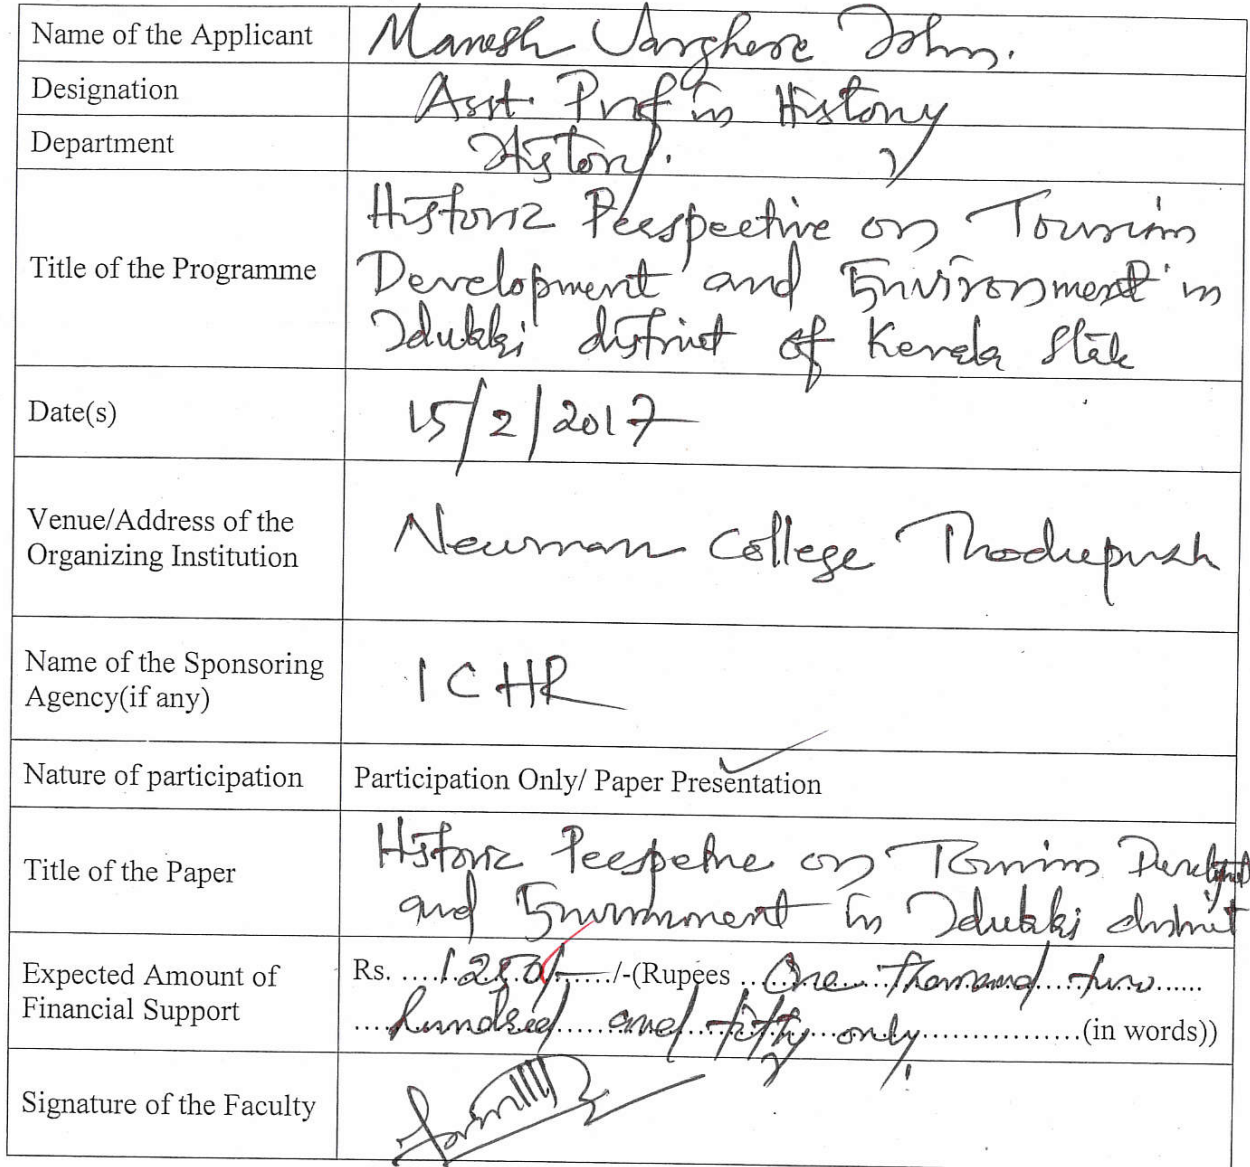 Name of the Applicant Manesh Varghese John.
Designation Asst. Prof in History
Department History.
Historic Perspective on Tourism
Title of the Programme Development and Environment in
Idukki district of Kerala State
Date(s) 15/2/2017
Venue/Address of the
Organizing Institution
Newman College Thodupuzh
Name of the Sponsoring
Agency(if any)
ICHR
Nature of participation Participation Only/ Paper Presentation
Title of the Paper
Historic Perspective on Tourism
and Environment in Idukki district
Expected Amount of
Financial Support
Rs. ....1250/-..../-(Rupees ..One thousand two......
....hundred and fifty only................(in words))
Signature of the Faculty